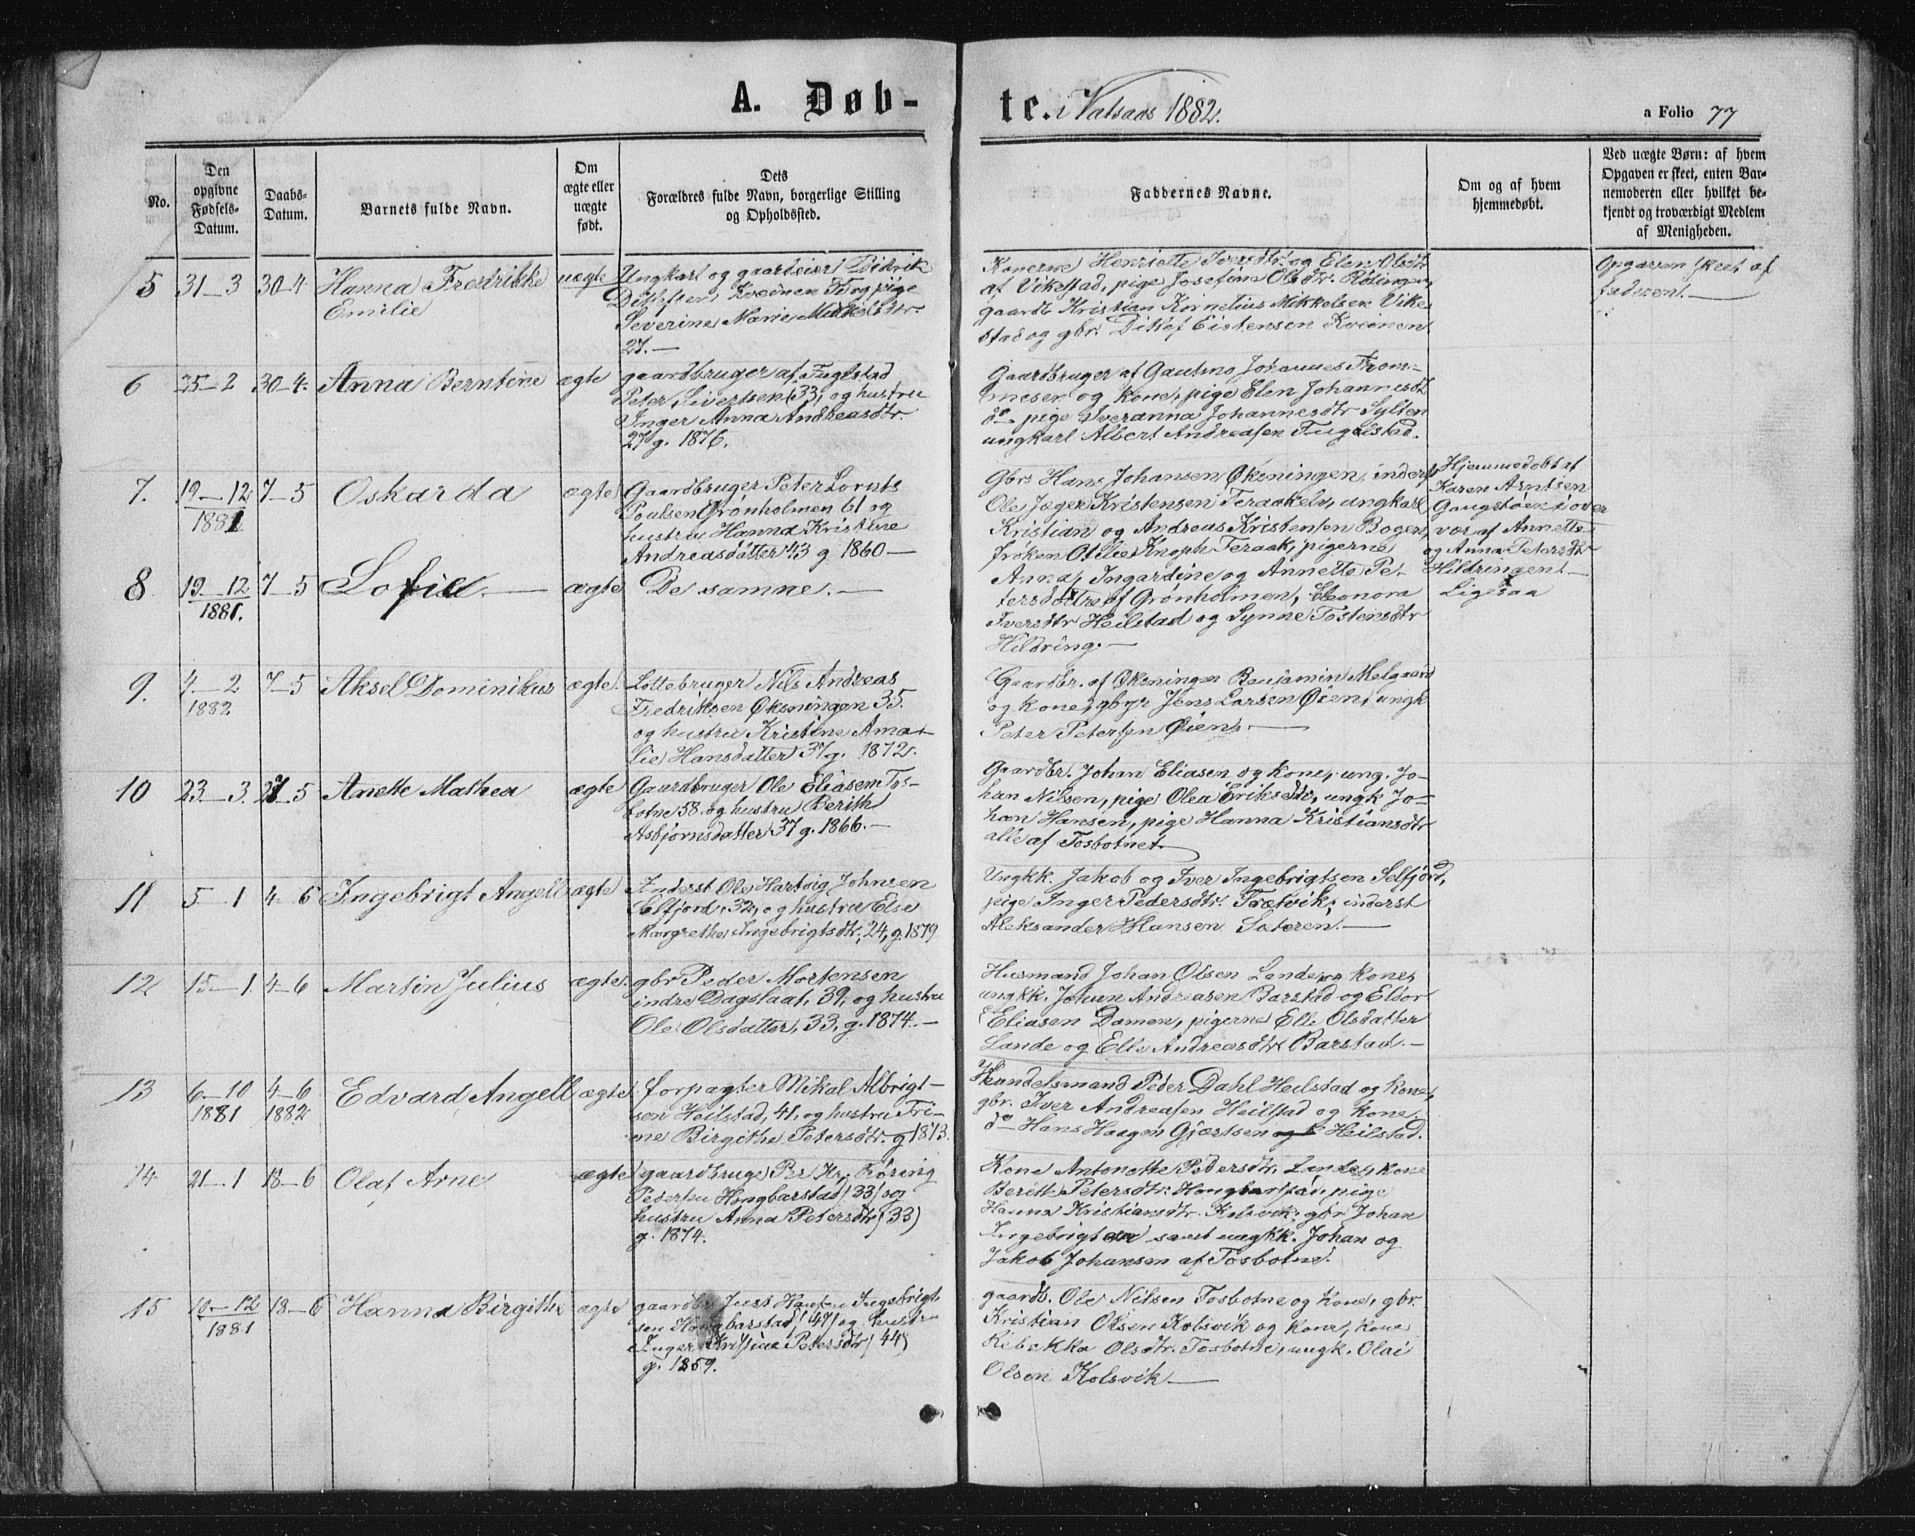 A. Døb-
te. i Valsaas 1882.
a Folio 77
No.
Den
opgivne
Fødsels-
Datum.
Daabs-
Datum.
Barnets fulde Navn.
Om
ægte eller
uægte
født.
Dets
Forældres fulde Navn, borgerlige Stilling
og Opholdssted.
Faddernes Navne.
Om og af hvem
hjemmedøbt.
Ved uægte Børn: af hvem
Opgaven er skeet, enten Bar-
nemoderen eller hvilket be-
kjendt og troværdigt Medlem
af Menigheden.
5 31–3 30–4 Hanna Fredrikke
Emilie
uægte
Ungkarl og gaardeier Didrik
Ditlefsen, Kveinen og pige
Severine Marie Mikkelsdtr.
27.—
Konerne Henriette Iversdtr. og Elen Olsdtr
af Vikestad, pige Josefine Olsdtr.
gaardb Kristian Kornelius Mikkelsen Vike
stad og gbr. Ditlef Eistensen Kveinen
Opgaven skeet af
faderen.—
6 25–2 30–4 Anna Berntine ægte
gaardbruger af Fuglstad
Peter Sivertsen, 33, og hustru
Inger Anna Andreasdtr
27 g. 1876.
Gaardbruger af Gautmo Johannes Trom-
mesen og kone, pige Elen Johannesdt
do pige Iveranna Johannesdtr Sylten
ungkarl Albert Andreasen Fuglstad.
7. 19–12 7–5 Oskarda ægte
1881
Gaardbruger Peter Lornts
Poulsen Grønholmen 61 og
hustru Hanna Kristine
Andreasdatter 43 g. 1860—
Gbr. Hans Johansen Øksningen, inderst
Ole Jæger Kristensen Teraakelv, ungkarl
Kristian og Andreas Kristensen Bogen,
frøken Otilie Knoph Teraak, pigerne
Anna, Ingardine og Annette Pe-
tersdøtre af Grønholmen, Eleonora
Iversdtr Heilstad og Synne Tostensdtr
Hildring.—
Hjemmedøbt af
Karen Arntsen
Gaugstøen i over
vær af Annette
og Anna Petersdtr
Hildringen—
Ligesaa
8 19–12 7–5 Sofie.— ægte
1881.
De samme.—
9. 4–2 7–5 Aksel Dominikus ægte.
1882
Lottebruger Nils Andreas
Fredriksen Øksningen 35.
og hustru Kristine Ama-
lie Hansdatter 37 g. 1872.
Gaardbr. af Øksningen Benjamin Melgaard
og kone, gbr Jens Larsen Øien, ungk
Peter Petersen Øien.—
10 23.–3. 27–5 Anette Mathea ægte
Gaardbruger Ole Eliasen Tos-
botne 58. og hustru Berith
Asbjørnsdatter 37 g. 1866.—
Gaardbr. Johan Eliasen og kone, ung. Jo-
han Nilsen, pige Olea Eriksdtr, ungk Jo-
han Hansen, pige Hanna Kristiansdtr
alle af Tosbotnet.
11 5–1 4–6 Ingebrigt Angell ægte
Inderst Ole Hartvig Johnsen
Selfjord, 32, og hustru Else
Margrethe Ingebrigtsdtr; 24, g. 1879
Ungkk. Jakob og Iver Ingebrigtsen Selfjord,
pige Inger Pedersdtr. Trætvik, inderst
Aleksander Hansen Sateren.—
12 15–1. 4–6 Martin Julius ægte.
gbr Peder Mortensen
indre Dagslaat, 39, og hustru
Ole Olsdatter, 33, g. 1874.—
Husmand Johan Olsen Lande og kone,
ungkk. Johan Andreasen Barstad og Eliaser
Eliasen Damen, pigerne Elle Olsdatter
Lande og Elle Andreasdtr Barstad.—
13 6–10 4–6 Edvard Angell ægte.
1881 1882
forpagter Mikal Albrigt-
sen Heilstad, 41, og hustru Tri-
ne Birgithe Petersdtr. g 1873.
Handelsmand Peder Dahl Heilstad og kone,
gbr. Iver Andreasen Heilstad og kone.
do Hans Haagen Gjærtsen og k Heilstad.
14 21–1 18–6 Olaf Arne ægte
gaardbruge Pr Kr. Tøring
Pedersen Hongbarstad (33) og
hustru Anna Petersdtr (33)
g. 1874.
Kone Antonette Pedersdtr. Lande, kone
Berith Petersdtr. Hongbarstad, pige
Hanna Kristiansdtr. Kolsvik, gbr Johan
Ingebrigtsen samt ungkk. Johan og
Jakob Johansen af Tosbotne.
15 10–12 18–6 Hanna Birgithe ægte
1881
gaardbr Jens Hansen Ingebrigt-
sen Hongbarstad (49) og hustru
Inger Kristine Petersdtr (44)
g. 1859.
gaardb. Ole Nilsen Tosbotne og kone, gbr.
Kristian Olsen Kolsvik og kone, kone
Rebekka Olsdtr. Tosbotne, ungk. Olai
Olsen Kolsvik—